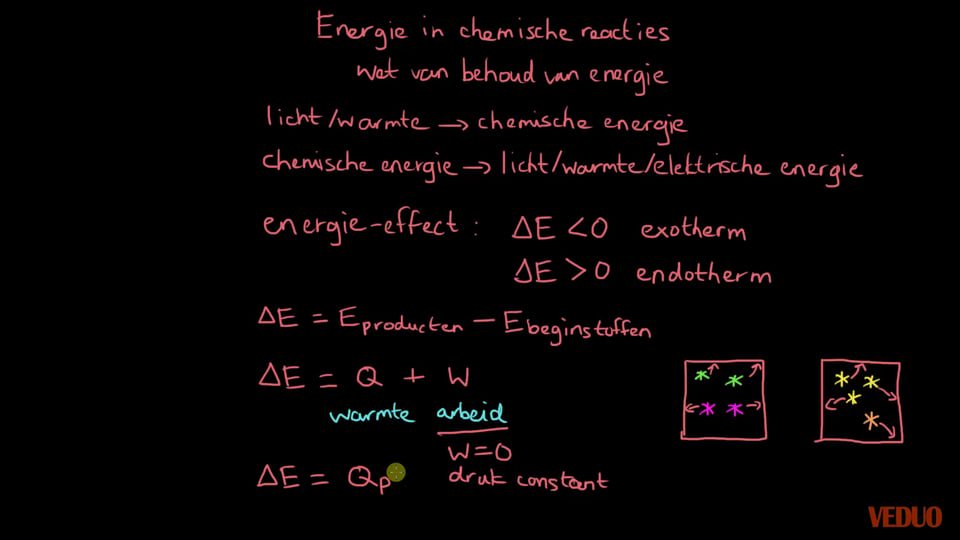 Energie in chemische reacties
wet van behoud van energie
licht/warmte → chemische energie
chemische energie → licht/warmte/elektrische energie
energie-effect : ΔE < 0 exotherm
ΔE > 0 endotherm
ΔE = E producten − E beginstoffen
ΔE = Q + W
warmte arbeid
W = 0
ΔE = Qp druk constant
VEDUO